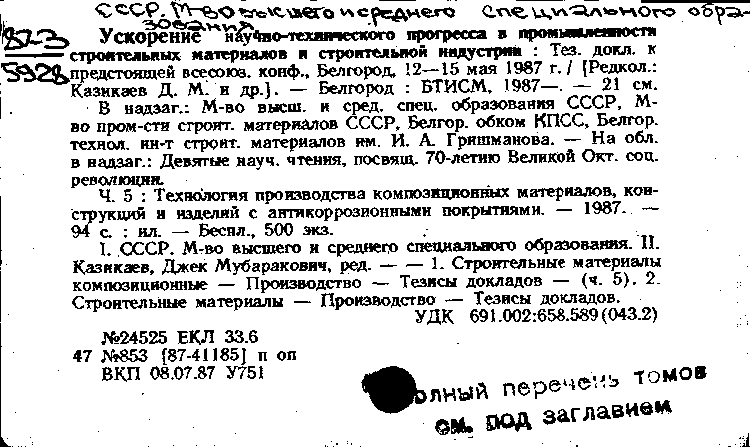 СССР. М-во высшего и среднего специального обра-
зования
823
5928
Ускорение научно-технического прогресса в промышленности
строительных материалов и строительной индустрии : Тез. докл. к
предстоящей всесоюз. конф., Белгород, 12—15 мая 1987 г. / [Редкол.:
Казикаев Д. М. и др.]. — Белгород : БТИСМ, 1987—. — 21 см.
В надзаг.: М-во высш. и сред. спец. образования СССР, М-
во пром-сти строит. материалов СССР, Белгор. обком КПСС, Белгор.
технол. ин-т строит. материалов им. И. А. Гришманова. — На обл.
в надзаг.: Девятые науч. чтения, посвящ. 70-летию Великой Окт. соц.
революции.
Ч. 5 : Технология производства композиционных материалов, кон-
струкций и изделий с антикоррозионными покрытиями. — 1987. —
94 с. : ил. — Беспл., 500 экз.
I. СССР. М-во высшего и среднего специального образования. II.
Казикаев, Джек Мубаракович, ред. — — 1. Строительные материалы
композиционные — Производство — Тезисы докладов — (ч. 5). 2.
Строительные материалы — Производство — Тезисы докладов.
УДК 691.002:658.589(043.2)
№24525 ЕКЛ 33.6
47 №853 [87-41185] п оп
ВКП 08.07.87 У751
олный перечень томов
см. под заглавием